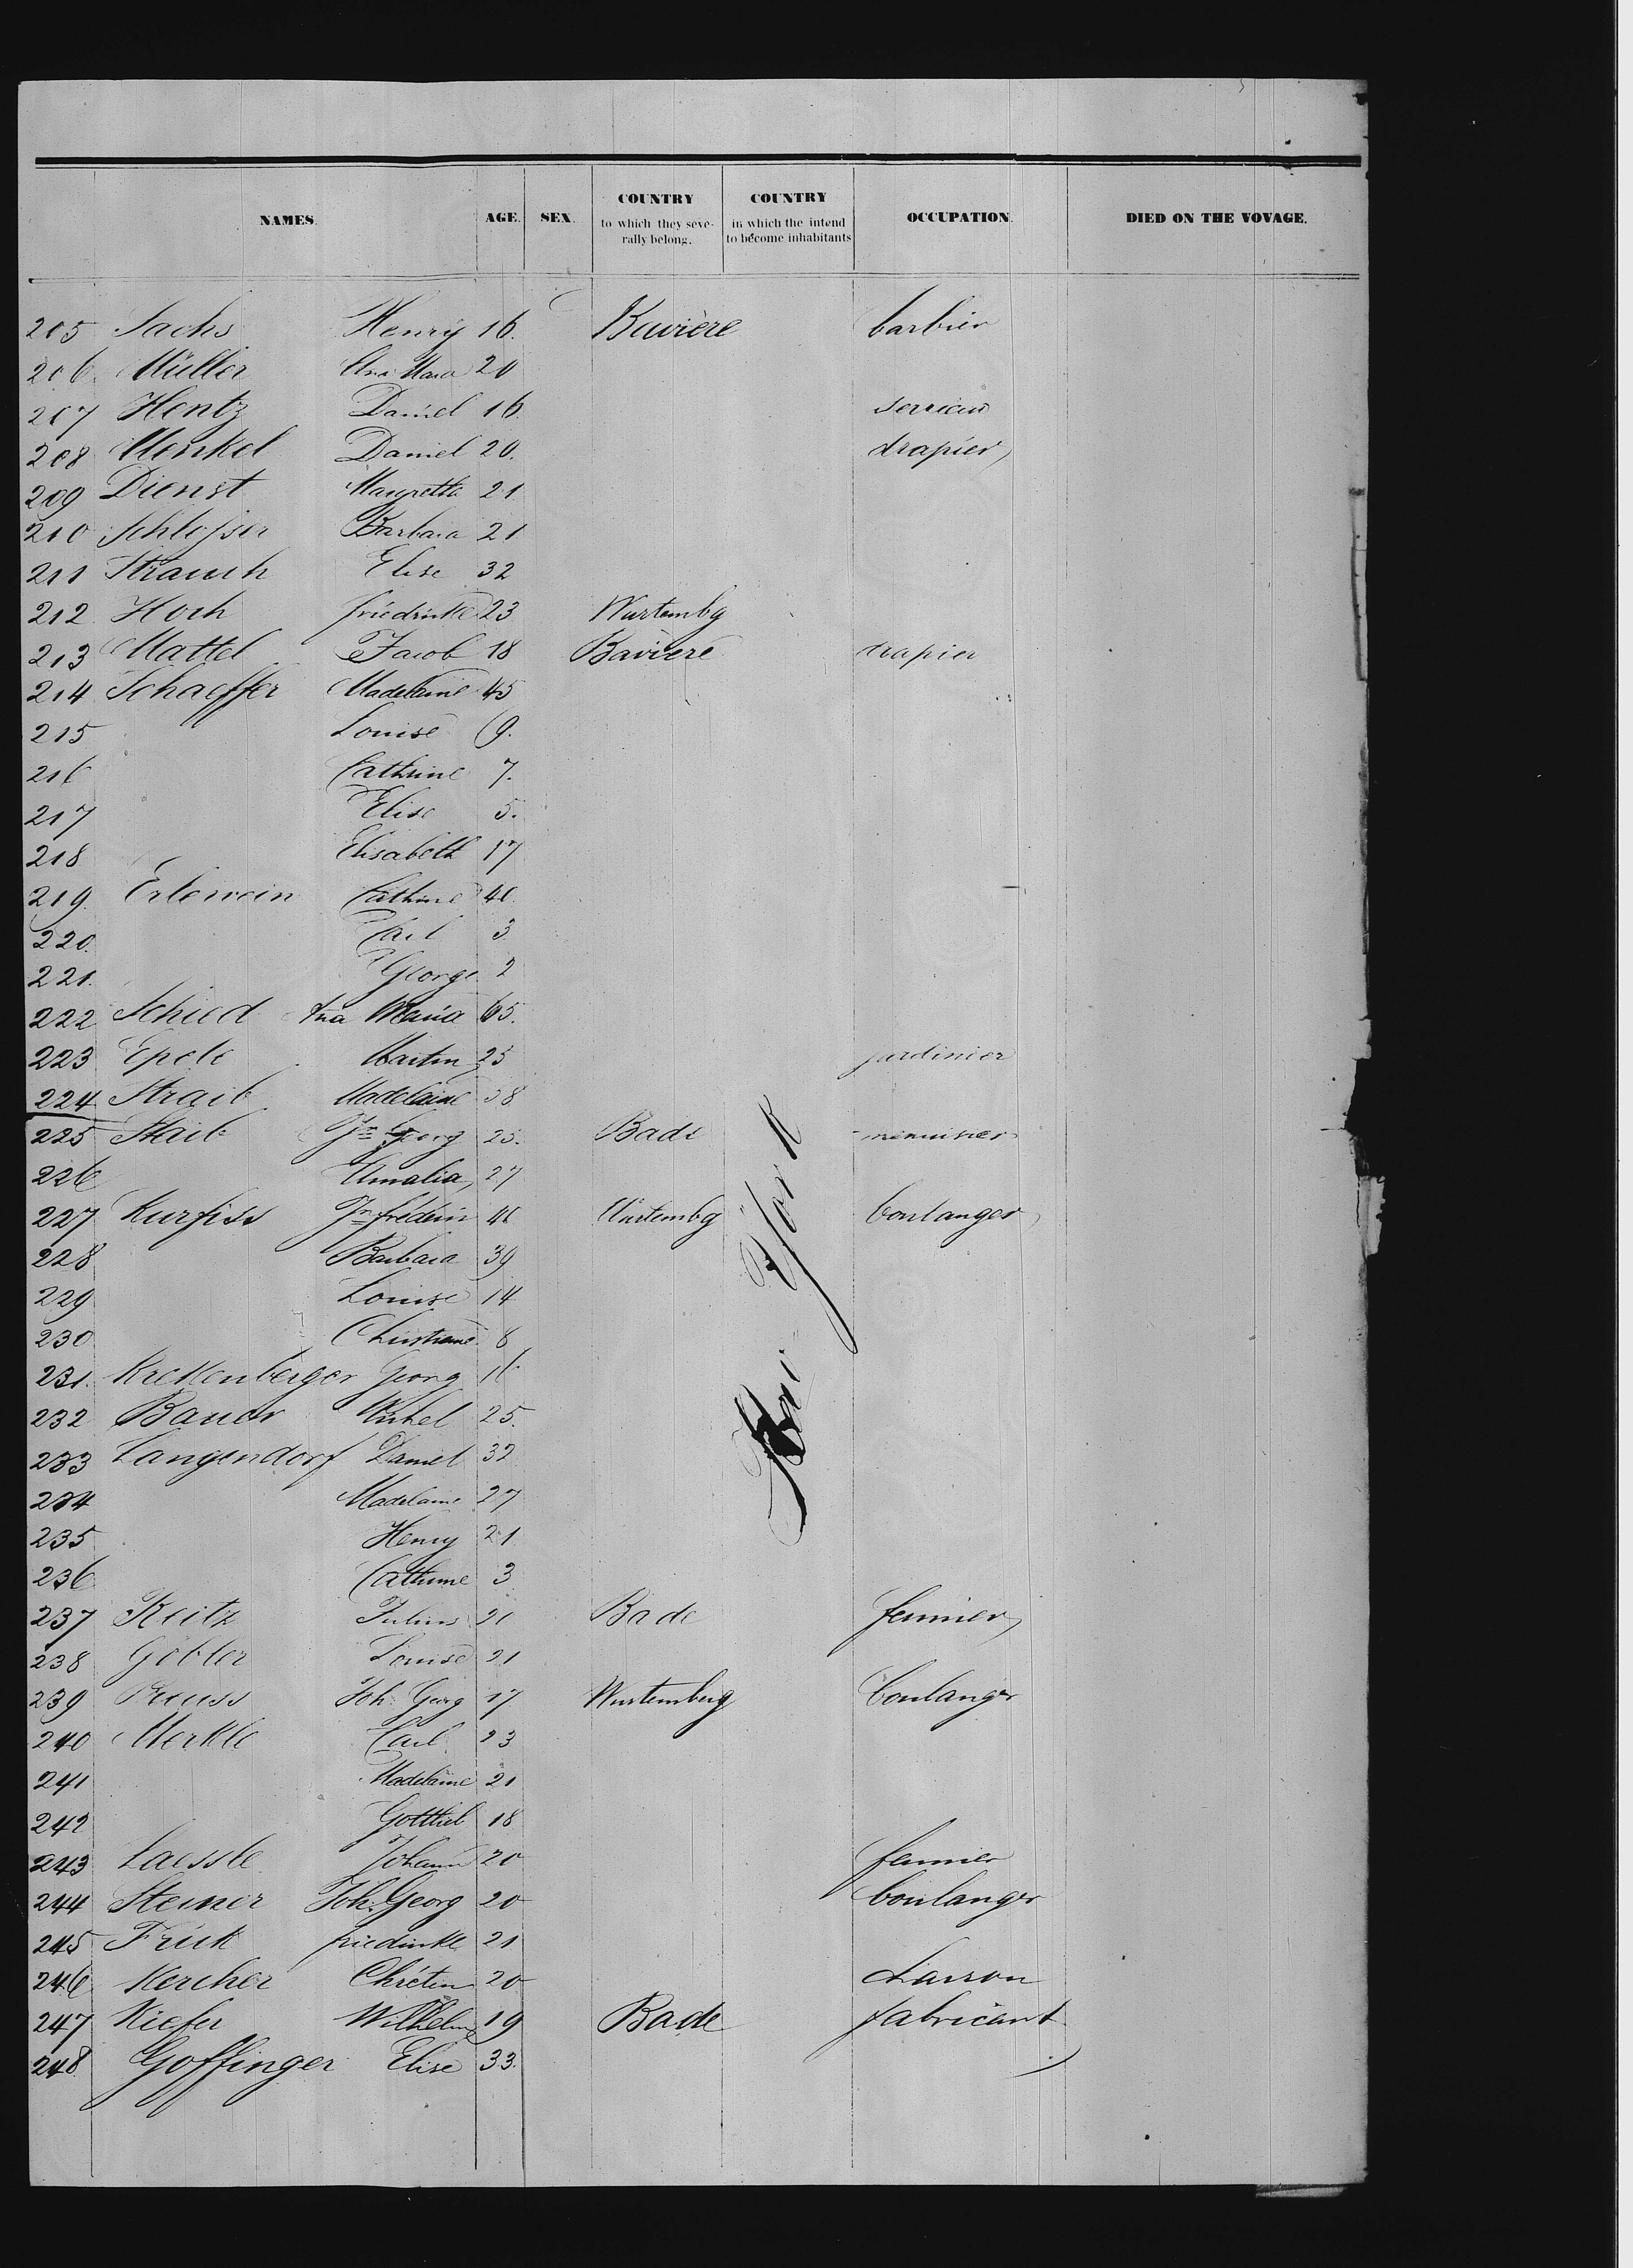 NAMES. AGE. SEX. COUNTRY to which they severally belong. COUNTRY in which the intend to become inhabitants OCCUPATION. DIED ON THE VOYAGE.
205 Sachs Henry 16. Bavière barbier
206 Müller Ana Maria 20
207 Hentz Daniel 16.
208 Menkel Daniel 20. drapier
209 Dienst Margretta 21
210 Schlosser Barbara 21
211 Strauch Elise 32
212 Hoch friedrike 23 Wurtembg
213 Mattel Jacob 18 Bavière drapier
214 Schaeffer Madelaine 45
215 Louise 9.
216 Cathrine 7.
217 Elise 5.
218 Elisabeth 17
219. Erlenwein Cathrine 40.
220. Carl 3
221. George 2
222 Schied Ana Maria 65.
223 Epele Martin 25 jardinier
224 Straib Madelaine 38
225 Staib Jn Georg 25. Bade menuisier
226 Amalia 27
227 Kurfiss Jn fréderic 46 Würtembg boulanger
228 Barbara 39
229 Louise 14
230 Christiane 8
231. Krekenberger Georg 16
232 Bauer Michel 25.
233 Langendorf Daniel 32
234 Madelaine 27
235 Henry 21
236 Cathrine 3
237 Reitz Julius 20 Bade fermier
238 Gobler Louise 21
239 Preuss Joh. Georg 17 Wurtemberg boulanger
240 Merkle Carl 23
241 Madelaine 21
242 Gottlieb 18
243 Laessle Johann 20 fermier
244 Steiner Joh. Georg 20 boulanger
245 Frick friedrike 21
246 Kercher Chrétien 20
247 Kiefer Wilhelm 19 Bade fabricant
248 Goffinger Elise 33.
York